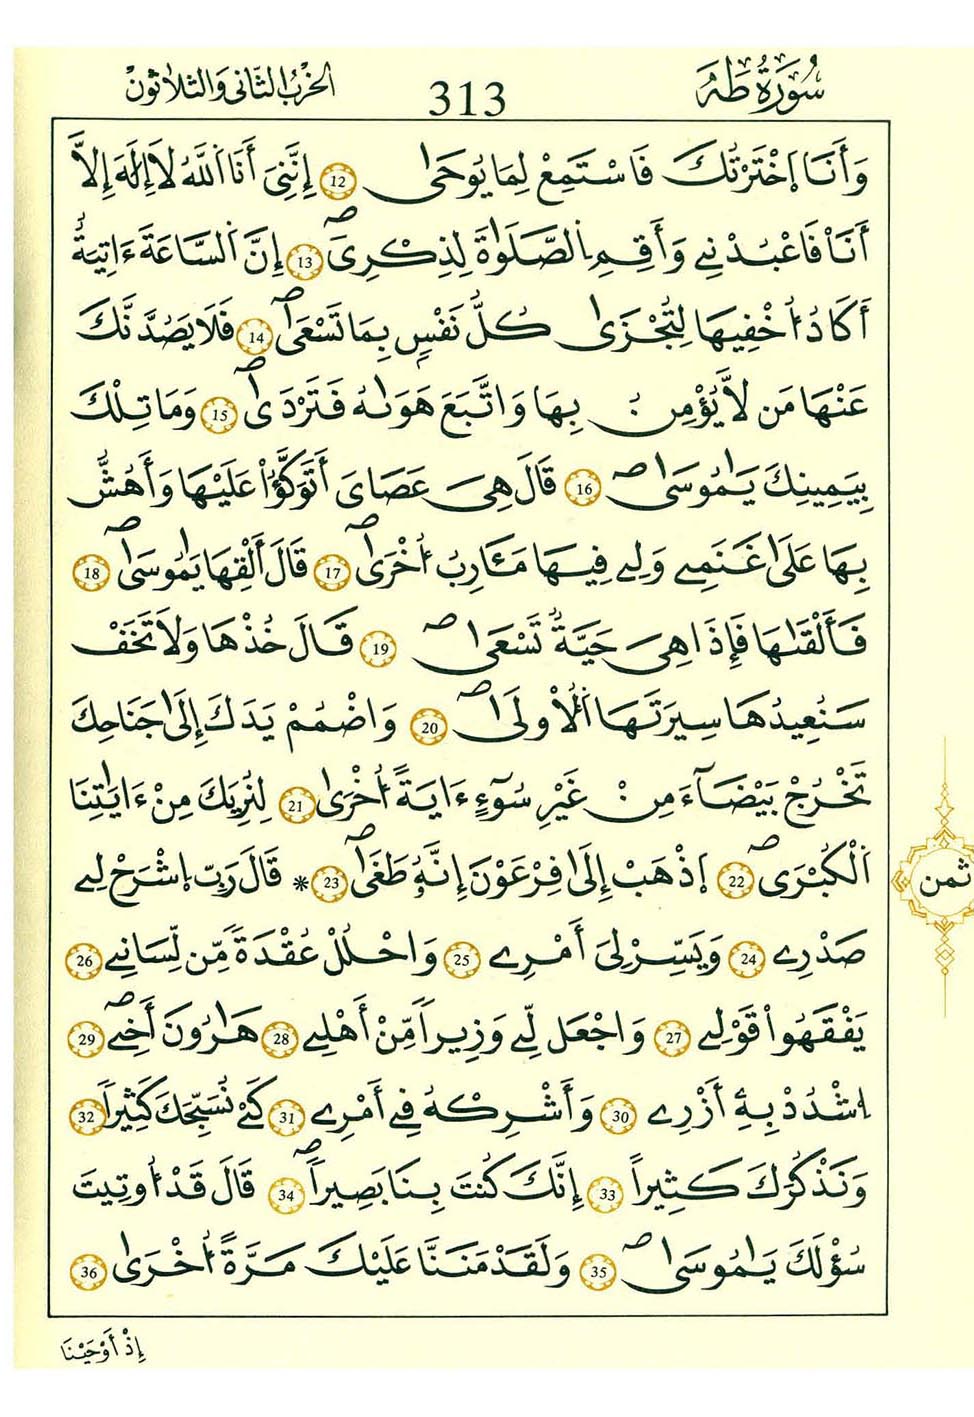 سُورَةُ طَهَ
313
الحزْبُ الثَّانِي وَالثَّلَاثُونَ
وَأَنَا اَ۪خْتَرْتُكَ فَاسْتَمِعْ لِمَا يُوحَىٰٓ 12 إِنَّنِيَ أَنَا اَ۬للَّهُ لَا إِلَٰهَ إِلَّا
أَنَا فَاعْبُدْنِے وَأَقِمِ اِ۬لصَّلَوٰةَ لِذِكْرِيَ 13 إِنَّ اَ۬لسَّاعَةَ ءَاتِيَةٌ
أَكَادُ أُخْفِيهَا لِتُجْزَىٰ كُلُّ نَفْسٍ بِمَا تَسْعَىٰ 14 فَلَا يَصُدَّنَّكَ
عَنْهَا مَن لَّا يُؤْمِنُ بِهَا وَاتَّبَعَ هَوَىٰهُ فَتَرْدَىٰ 15 وَمَا تِلْكَ
بِيَمِينِكَ يَٰمُوسَىٰ 16 قَالَ هِيَ عَصَايَ أَتَوَكَّؤُاْ عَلَيْهَا وَأَهُشُّ
بِهَا عَلَىٰ غَنَمِے وَلِے فِيهَا مَـَٔارِبُ أُخْرَىٰ 17 قَالَ أَلْقِهَا يَٰمُوسَىٰ 18
فَأَلْقَىٰهَا فَإِذَا هِيَ حَيَّةٌ تَسْعَىٰ 19 قَالَ خُذْهَا وَلَا تَخَفْ
سَنُعِيدُهَا سِيرَتَهَا اَ۬لُاولَىٰ 20 وَاضْمُمْ يَدَكَ إِلَىٰ جَنَاحِكَ
تَخْرُجْ بَيْضَآءَ مِنْ غَيْرِ سُوٓءٍ ءَايَةً أُخْرَىٰ 21 لِنُرِيَكَ مِنْ ءَايَٰتِنَا
اَ۬لْكُبْرَى 22 اَ۪ذْهَبْ إِلَىٰ فِرْعَوْنَ إِنَّهُۥ طَغَىٰ 23 * قَالَ رَبِّ اِ۪شْرَحْ لِے
صَدْرِے 24 وَيَسِّرْ لِيَ أَمْرِے 25 وَاحْلُلْ عُقْدَةً مِّن لِّسَانِے 26
يَفْقَهُواْ قَوْلِے 27 وَاجْعَل لِّے وَزِيراً مِّنْ أَهْلِے 28 هَٰرُونَ أَخِے 29
اَ۟شْدُدْ بِهِۦٓ أَزْرِے 30 وَأَشْرِكْهُ فِے أَمْرِے 31 كَےْ نُسَبِّحَكَ كَثِيراً 32
وَنَذْكُرَكَ كَثِيراً 33 إِنَّكَ كُنتَ بِنَا بَصِيراً 34 قَالَ قَدْ أُوتِيتَ
سُؤْلَكَ يَٰمُوسَىٰ 35 وَلَقَدْ مَنَنَّا عَلَيْكَ مَرَّةً أُخْرَىٰ 36
ثمن
إِذْ أَوْحَيْنَا